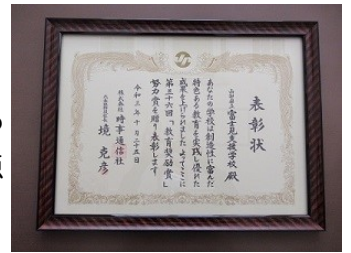 表彰状
山梨県立
富士見支援学校 殿
あなたの学校は創造性に富んだ
特色ある教育を実践し優れた
成果を上げられました よってここに
第三十六回「教育奨励賞」
努力賞を贈り表彰します
令和三年十月二十五日
株式会社 時事通信社
代表取締役社長
境 克彦